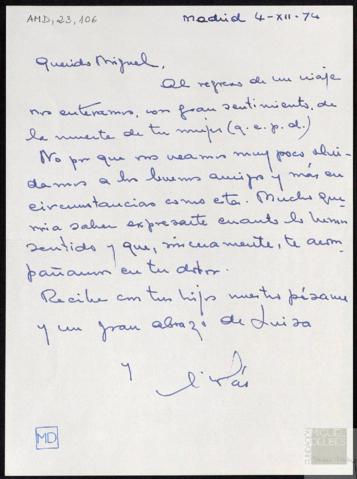 AMD, 23, 106
Madrid 4-XII-74
Querido Miguel,
Al regreso de un viaje
nos enteramos, con gran sentimiento, de
la muerte de tu mujer (q.e.p.d.)
No por que nos veamos muy poco olvi-
damos a los buenos amigos y más en
circunstancias como esta. Mucho que-
rria saber expresarte cuanto lo hemos
sentido y que, sinceramente, te acom-
pañamos en tu dolor.
Recibe con tus hijos nuestro pésame
y un gran abrazo de Luisa
y
MD
FUNDACIÓN
MIGUEL
DELIBES